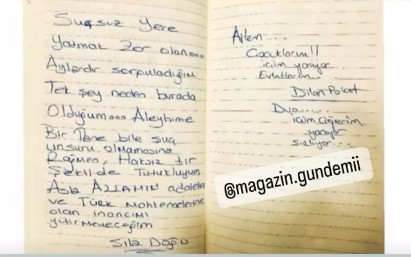 Suçsuz Yere
Yatmak Zor olan...
Aylardır sorguladığım
Tek şey neden burada
Olduğum... Aleyhime
Bir Tane bile suç
unsuru olmamasına
Rağmen, Haksız bir
Şekilde Tutukluyum
Asla ALLAHIN adaletine
ve TÜRK Mahkemelerine
olan inancımı
yitirmeyeceğim
Sıla Doğu
Ailem....
Çocuklarım!!
içim yanıyor
Evlatlarım...
Dilan Polat
Dua.....
içim Ciğerim
yanıyor
sızlıyor...
@magazin.gundemii